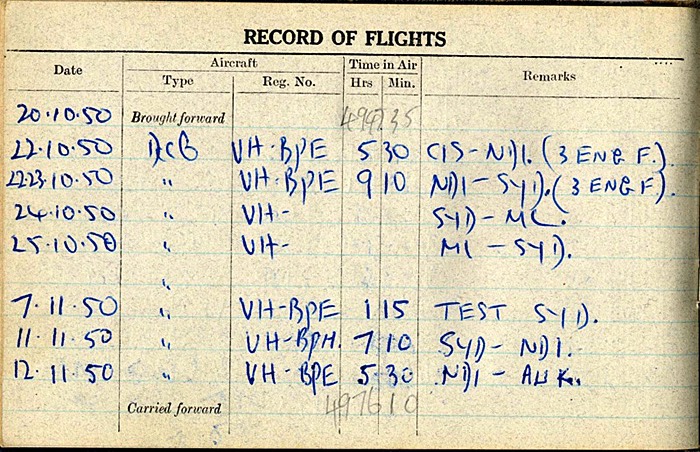 RECORD OF FLIGHTS
Date Aircraft Time in Air Remarks
Type Reg. No. Hrs Min.
20.10.50 Brought forward 35
22.10.50 DC6 VH-BPE 5 30 CIS-NDI. (3 ENG F.).
22-23.10.50 " VH-BPE 9 10 NDI-SYD. (3 ENG F).
24.10.50 " VH- SYD-ML.
25.10.50 " VH- ML-SYD.
"
7.11.50 " VH-BPE 1 15 TEST SYD.
11.11.50 " VH-BPH. 7 10 SYD-NDI.
12.11.50 " VH-BPE 5 30 NDI-
Carried forward 4976 10